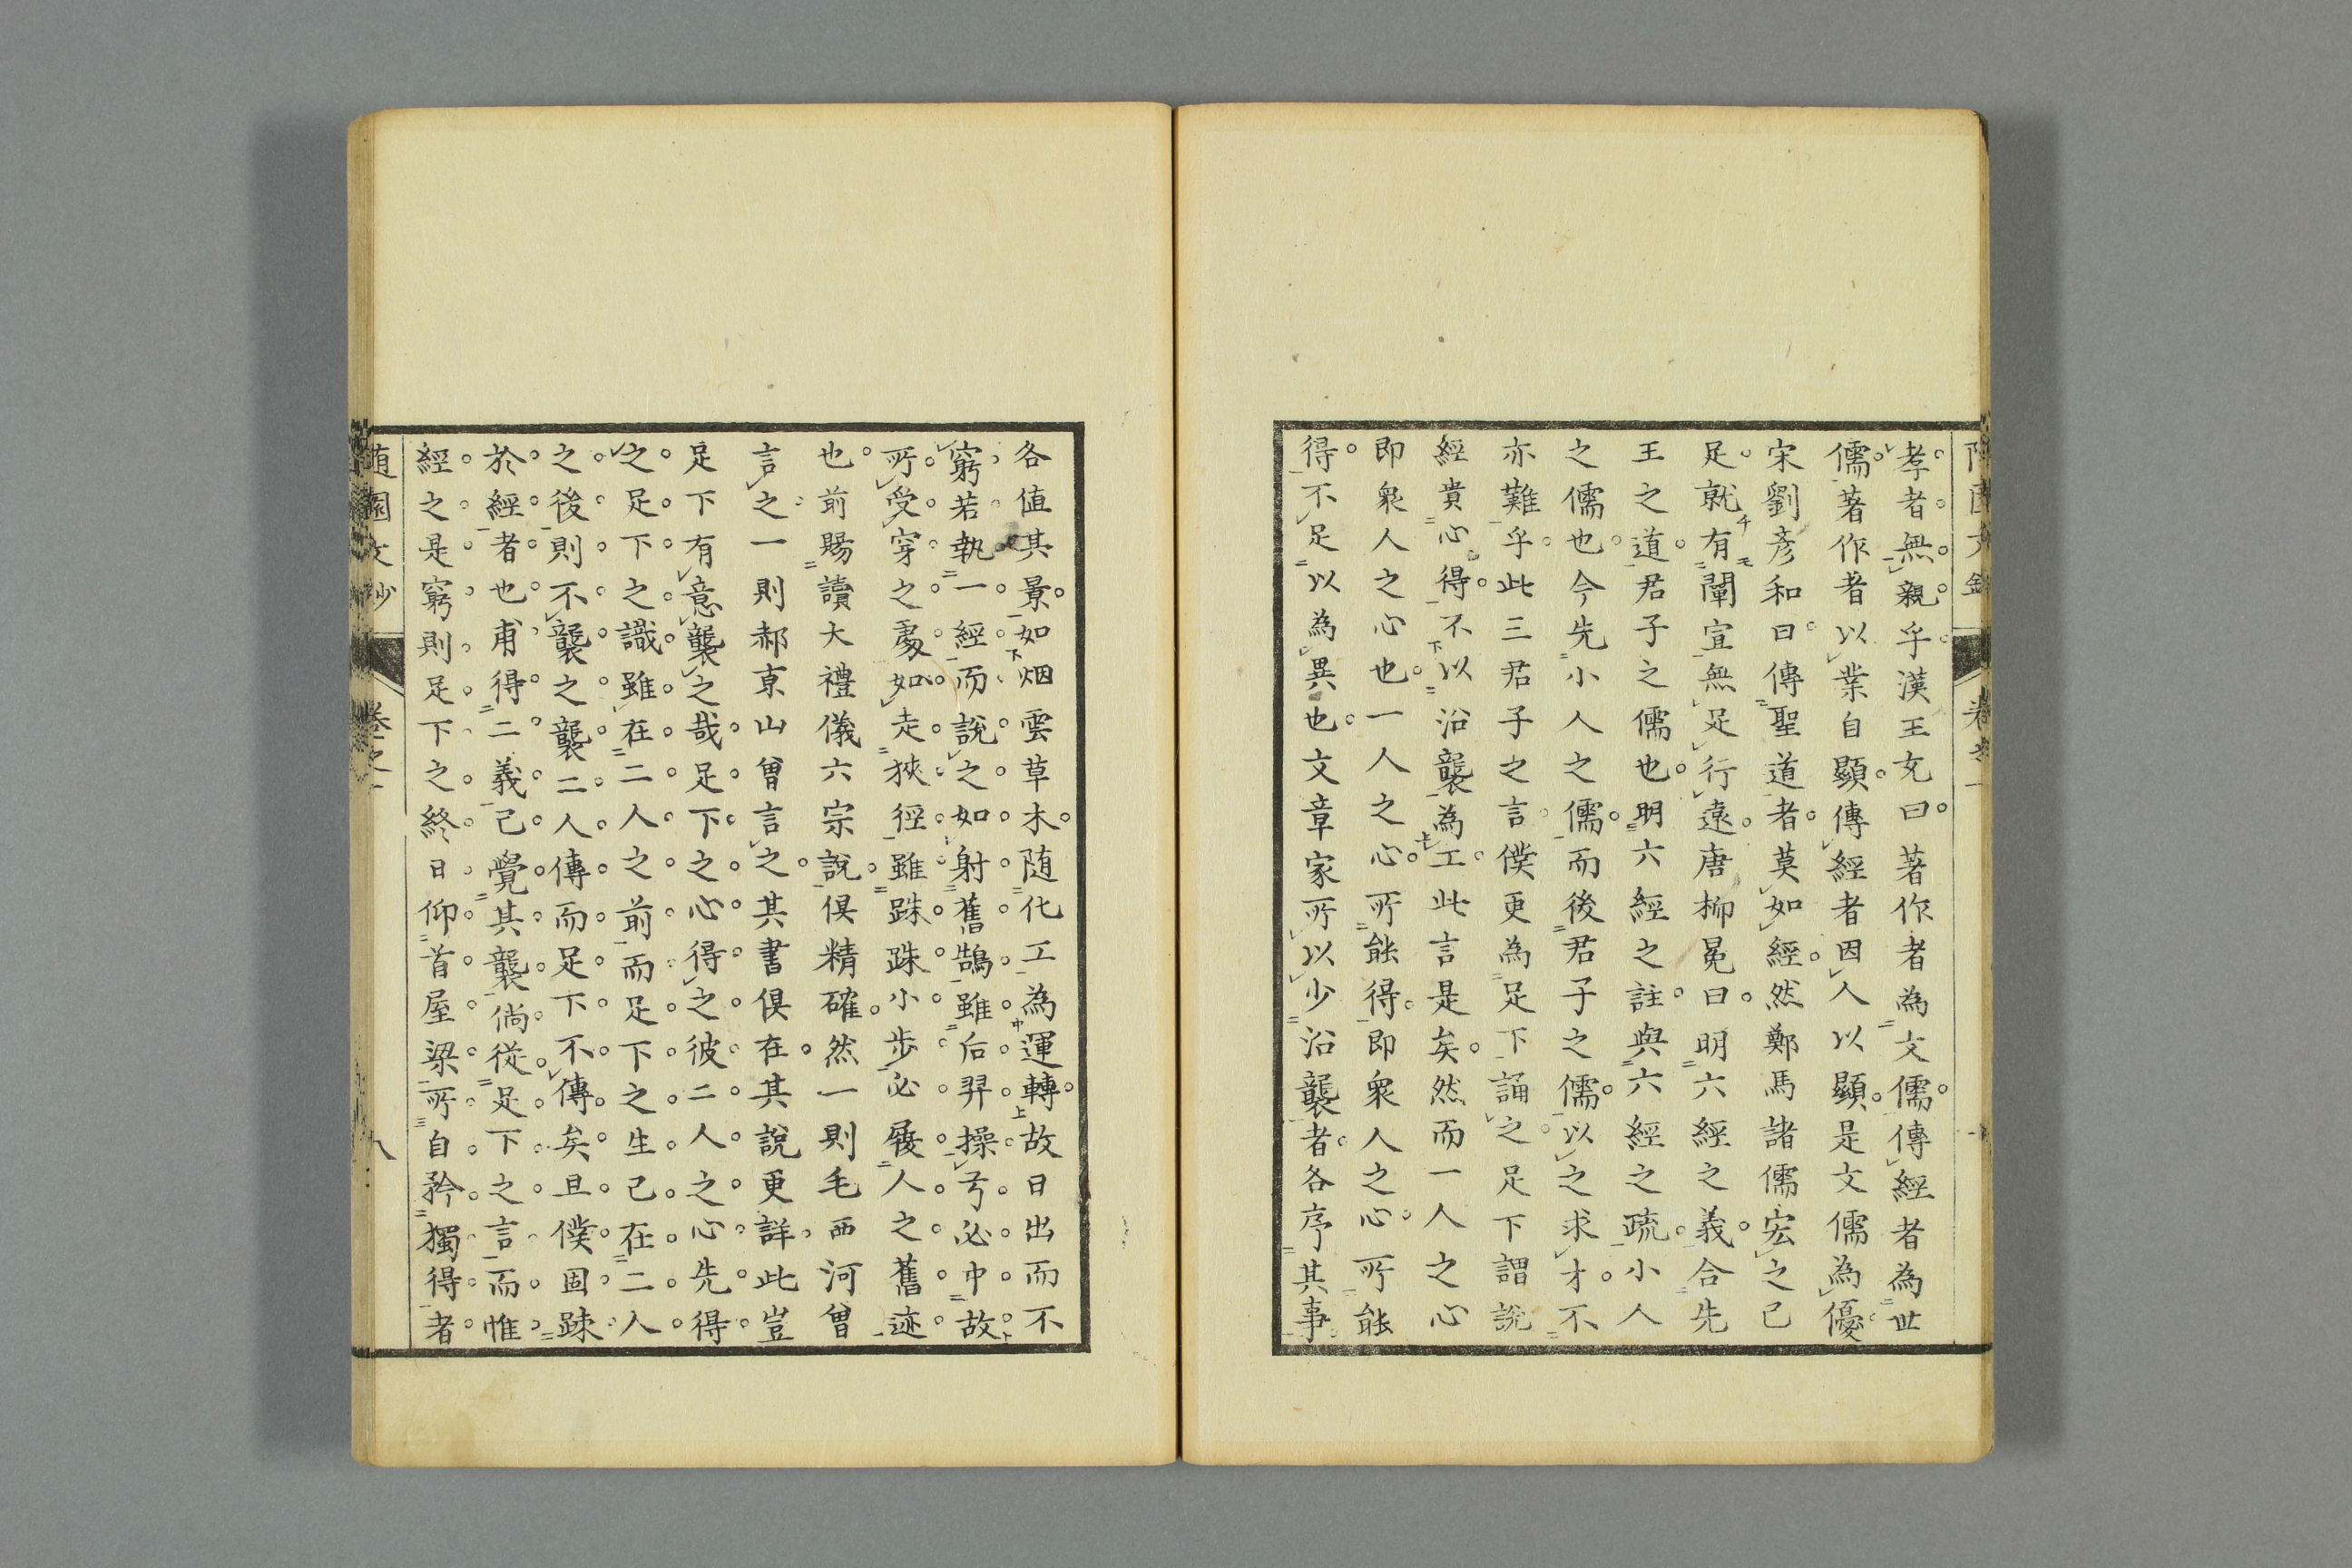 孝者無親乎漢王充曰著作者為文儒傳經者為世
儒著作者以業自顯傳經者因人以顯是文儒為優
宋劉彥和曰傳聖道者莫如經然鄭馬諸儒宏之已
足就有闡宣無足行遠唐柳冕曰明六經之義合先
王之道君子之儒也明六經之註與六經之疏小人
之儒也今先小人之儒而後君子之儒以之求才不
亦難乎此三君子之言僕更為足下誦之足下謂說
經貴心得不以沿襲為工此言是矣然而一人之心
即衆人之心也一人之心所能得即衆人之心所能
得不足以為異也文章家所以少沿襲者各序其事
各值其景如烟雲草木随化工為運轉故日出而不
窮若執一經而說之如射舊鵠雖后羿操弓必中故
所受穿之處如走狹徑雖跦跦小步必履人之舊迹
也前賜讀大禮儀六宗說俱精確然一則毛西河曾
言之一則郝京山曾言之其書俱在其說更詳此豈
足下有意襲之哉足下之心得之彼二人之心先得
之足下之識雖在二人之前而足下之生已在二人
之後則不襲之襲二人傳而足下不傳矣且僕固踈
於經者也甫得二義已覺其襲倘從足下之言而惟
經之是窮則足下之終日仰首屋梁所自矜獨得者
随園文鈔
卷之一
八